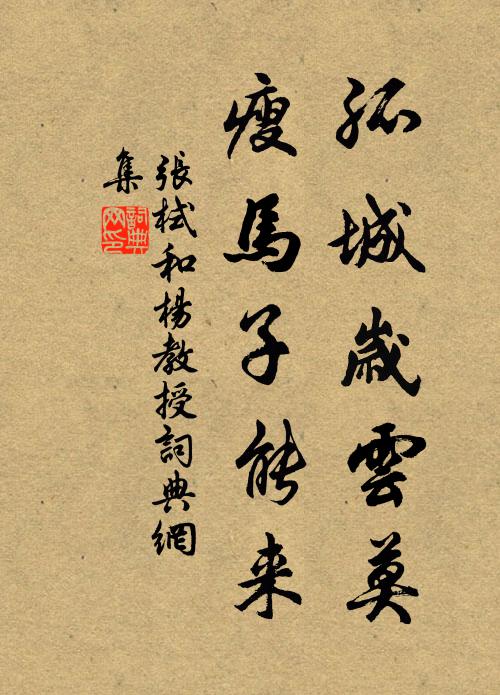 孤城歲雲莫
瘦馬子能来
張栻和楊教授詞典網
集
詞典網印